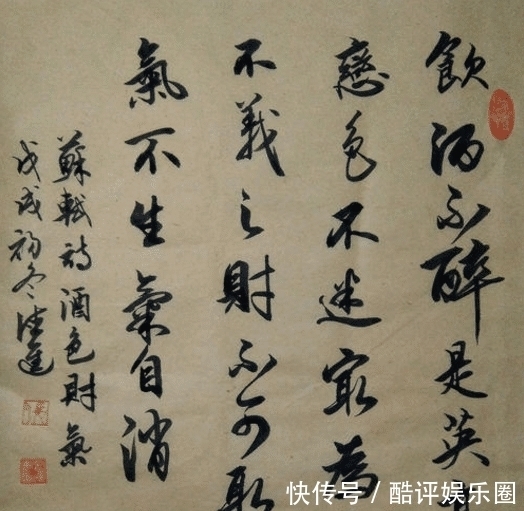 飲酒不醉是英
戀色不迷最為
不義之財不可取
氣不生氣自消
蘇軾詩酒色財氣
戊戌初冬
快传号/酷评娱乐圈